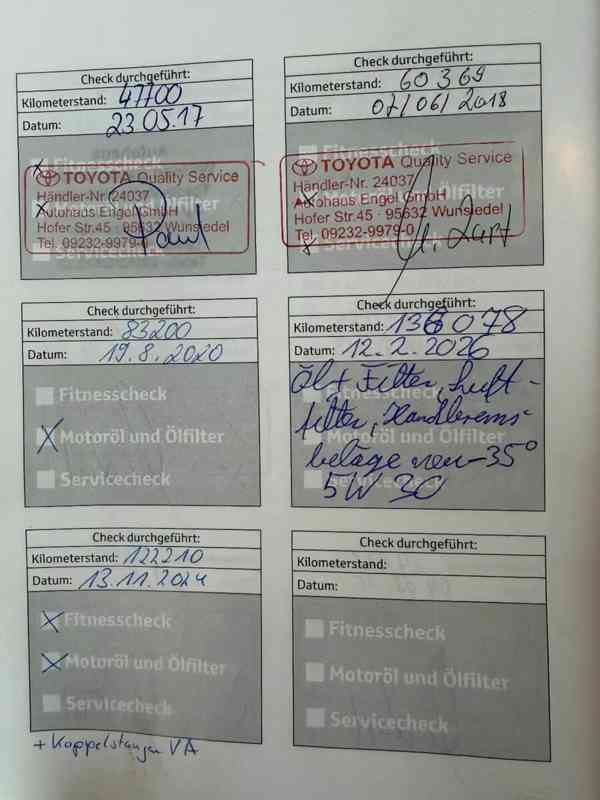 Check durchgeführt:
Kilometerstand: 47700
Datum: 23 05.17
Fitnesscheck
TOYOTA Quality Service
Händler-Nr. 24037
Autohaus Engel GmbH
Hofer Str.45 · 95632 Wunsiedel
Tel. 09232-9979-0
Servicecheck
Check durchgeführt:
Kilometerstand: 60369
Datum: 07/06/2018
Fitnesscheck
TOYOTA Quality Service
Händler-Nr. 24037
Autohaus Engel GmbH
Hofer Str.45 · 95632 Wunsiedel
Tel. 09232-9979-0
Servicecheck
Check durchgeführt:
Kilometerstand: 83200
Datum: 19.8.2020
Fitnesscheck
Motoröl und Ölfilter
Servicecheck
Check durchgeführt:
Kilometerstand: 136078
Datum: 12.2.2026
Öl + Filter, Luft-
filter, Handbrems-
beläge neu -35°
5W30
Fitnesscheck
Motoröl und Ölfilter
Servicecheck
Check durchgeführt:
Kilometerstand: 122210
Datum: 13.11.2024
Fitnesscheck
Motoröl und Ölfilter
Servicecheck
+ Koppelstangen VA
Check durchgeführt:
Kilometerstand:
Datum:
Fitnesscheck
Motoröl und Ölfilter
Servicecheck